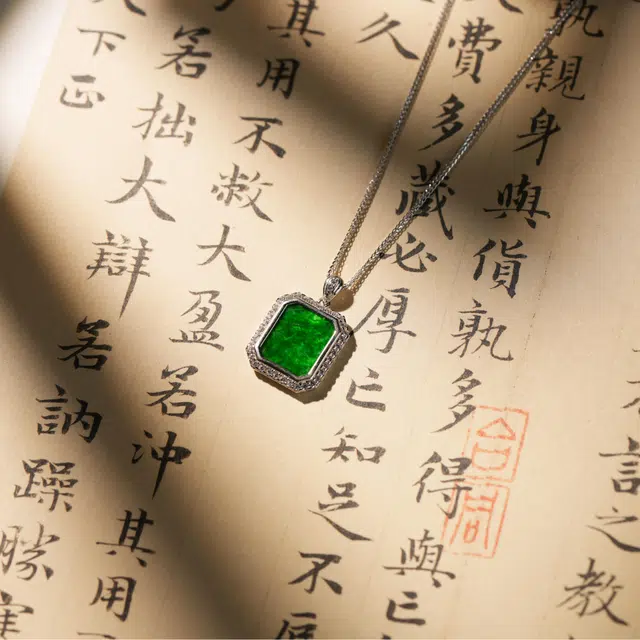 言之教
孰親身與貨孰多得與亡
費多藏必厚亡知足不
久
其用不敝大盈若沖其用
若拙大辯若訥躁勝
下正